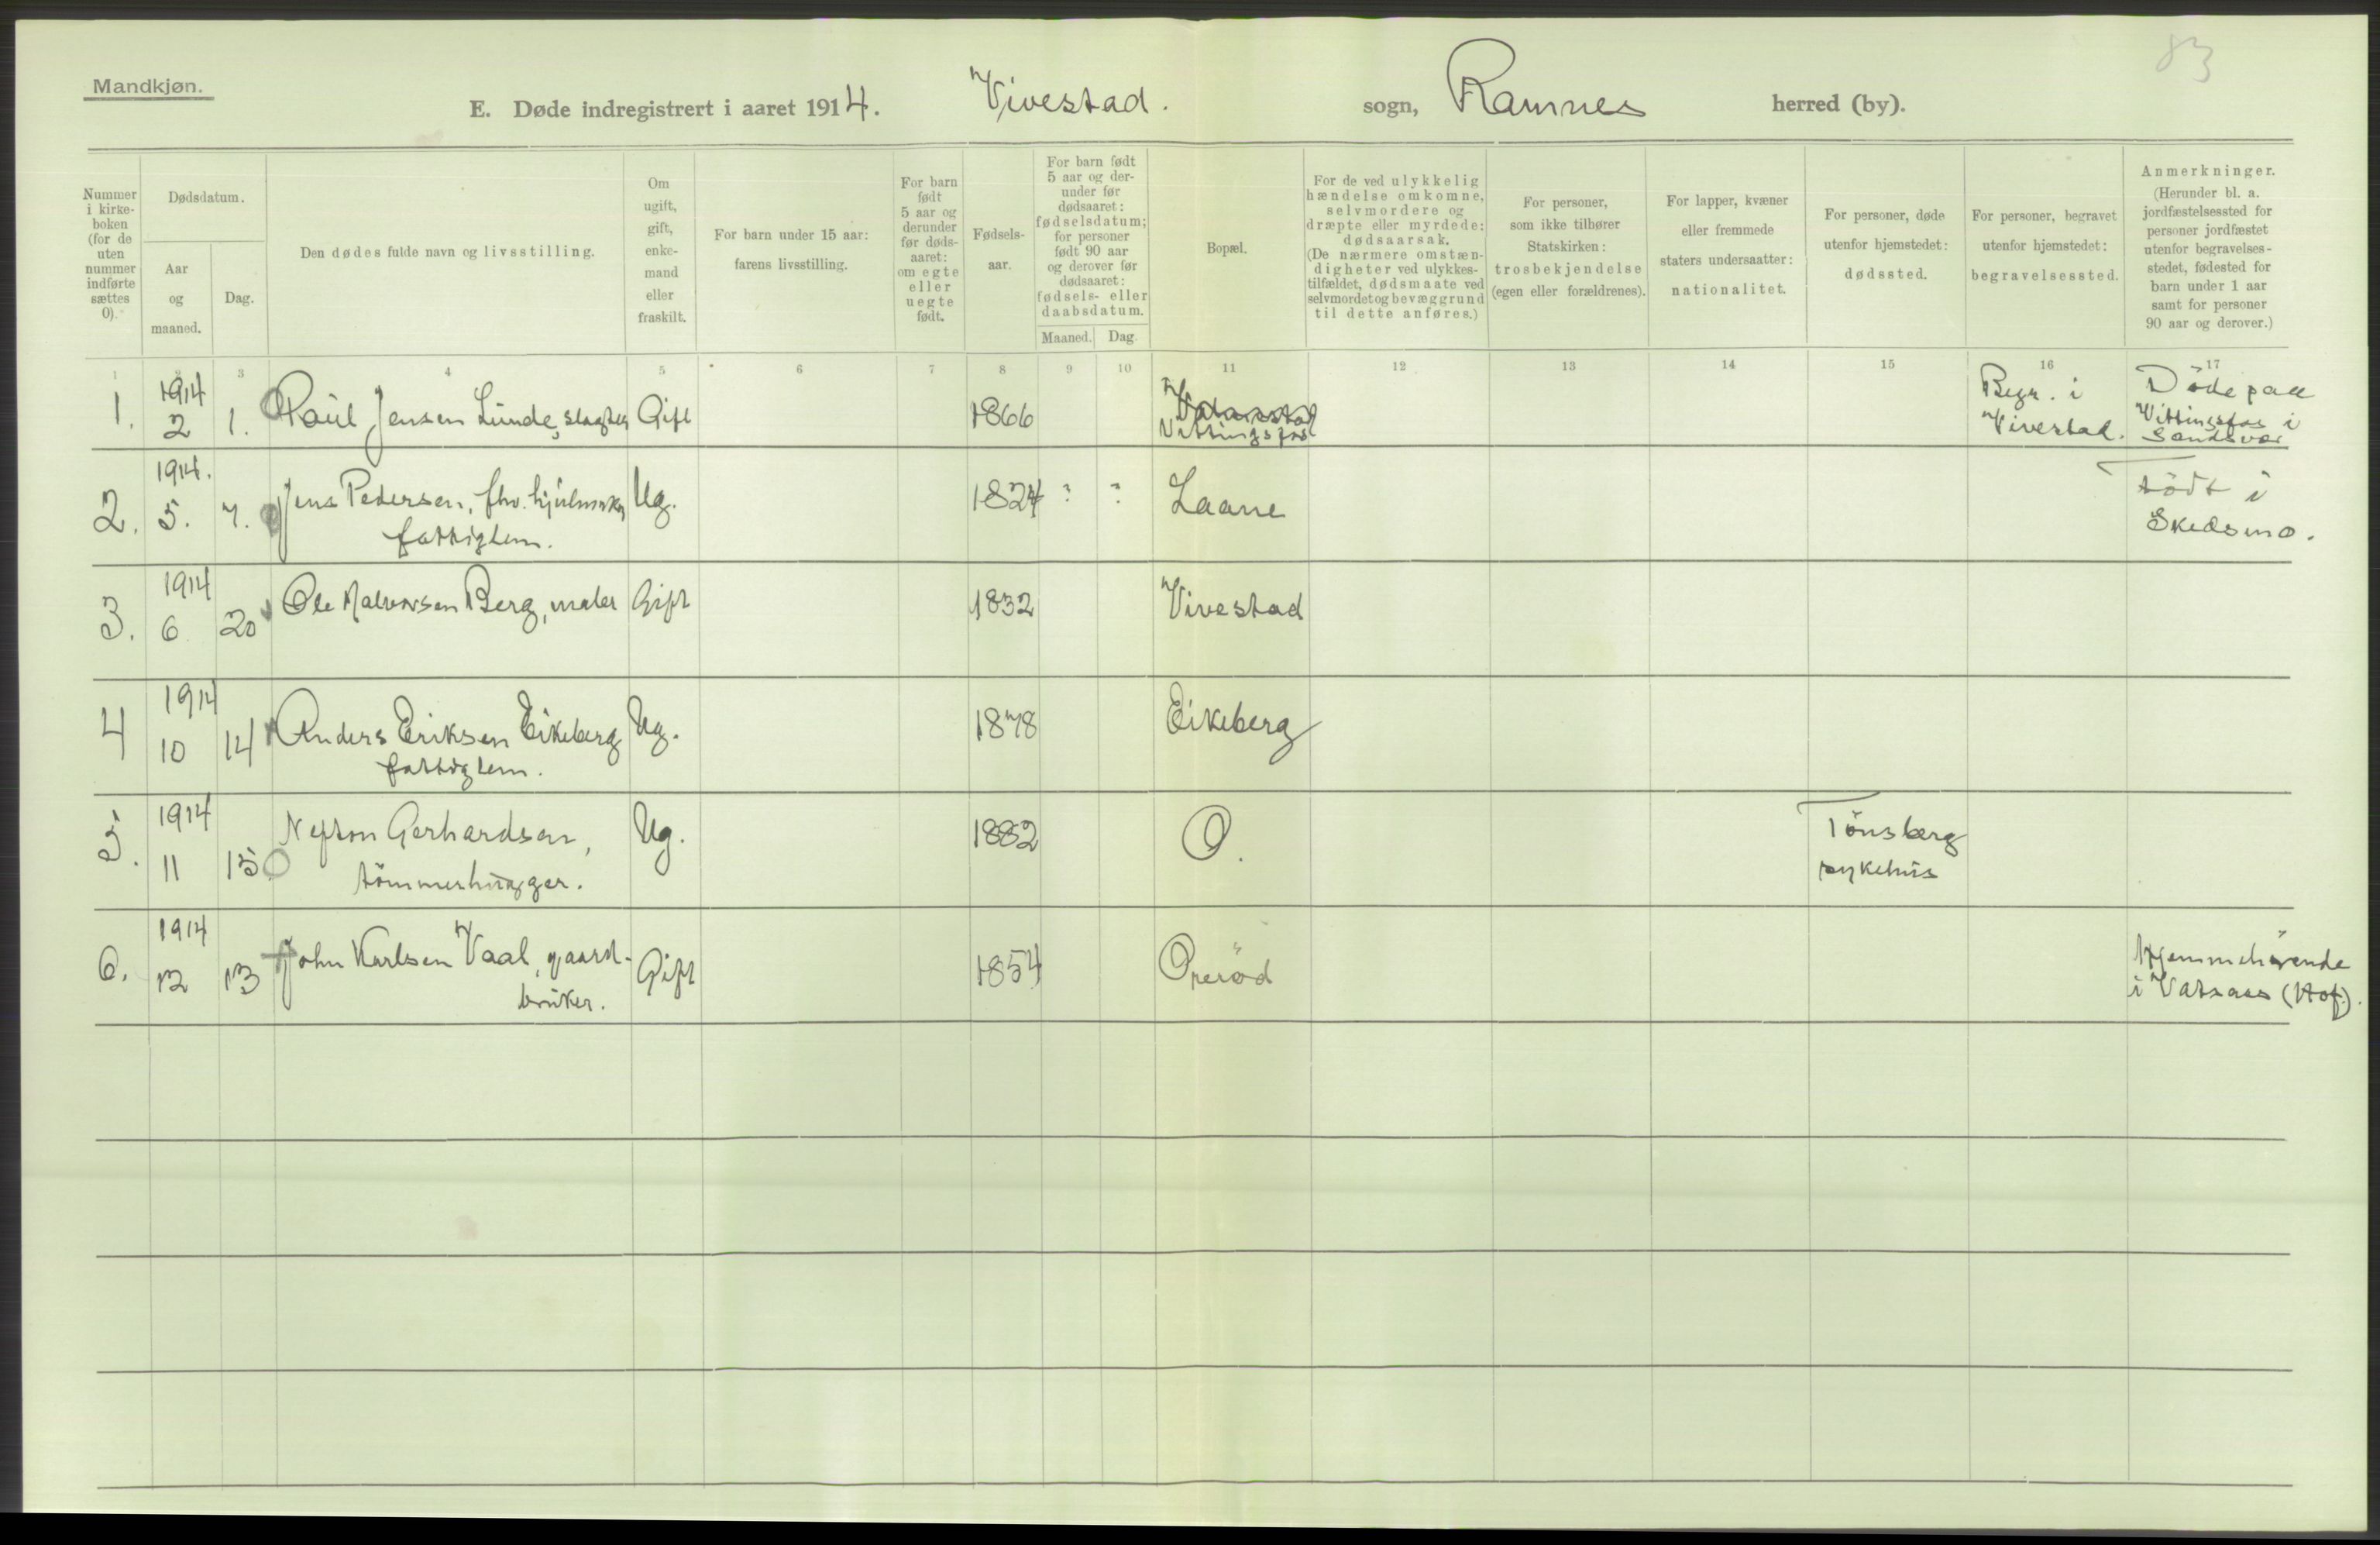 83
Mandkjøn.
E. Døde indregistrert i aaret 1914. Vivestad. sogn, Ramnes herred (by).
Nummer
i kirke-
boken
(for de
uten
nummer
indførte
sættes
0).
Dødsdatum.
Aar
og
maaned.
Dag.
Den dødes fulde navn og livsstilling.
Om
ugift,
gift,
enke-
mand
eller
fraskilt.
For barn under 15 aar:
farens livsstilling.
For barn
født
5 aar og
derunder
før døds-
aaret:
om egte
eller
uegte
født.
Fødsels-
aar.
For barn født
5 aar og der-
under før
dødsaaret:
fødselsdatum;
for personer
født 90 aar
og derover før
dødsaaret:
fødsels- eller
daabsdatum.
Maaned. Dag.
Bopæl.
For de ved ulykkelig
hændelse omkomne,
selvmordere og
dræpte eller myrdede:
dødsaarsak.
(De nærmere omstæn-
digheter ved ulykkes-
tilfældet, dødsmaate ved
selvmordet og bevæggrund
til dette anføres.)
For personer,
som ikke tilhører
Statskirken:
trosbekjendelse
(egen eller forældrenes).
For lapper, kvæner
eller fremmede
staters undersaatter:
nationalitet.
For personer, døde
utenfor hjemstedet:
dødssted.
For personer, begravet
utenfor hjemstedet:
begravelsessted.
Anmerkninger.
(Herunder bl. a.
jordfæstelsessted for
personer jordfæstet
utenfor begravelses-
stedet, fødested for
barn under 1 aar
samt for personer
90 aar og derover.)
1 2 3 4 5 6 7 8 9 10 11 12 13 14 15 16 17
1914
1. 2 1. Paul Jensen Lunde, slagter Gift 1866
Vittingsfos
Begr. i
Vivestad.
Døde paa
Vittingsfos i
Sandsvær
1914.
2. 5. 7. Jens Pedersen, fhv. hjulmaker Ug. 1824 ? ? Laane
fattiglem.
Født i
Skedsmo.
1914
3. 6 20 Ole Halvorsen Berg, maler Gift 1832 Vivestad
1914
4 10 14 Anders Eriksen Eikeberg Ug. 1878 Eikeberg
fattiglem.
1914
5. 11 15 Nefton Gerhardsen, Ug. 1882 O.
tömmerhugger.
Tönsberg
sykehus
1914
6. 12 13 John Karlsen Vaal, gaard- Gift 1854 Oreröd
bruker.
Hjemmehörende
i Vatsaas (Hof).